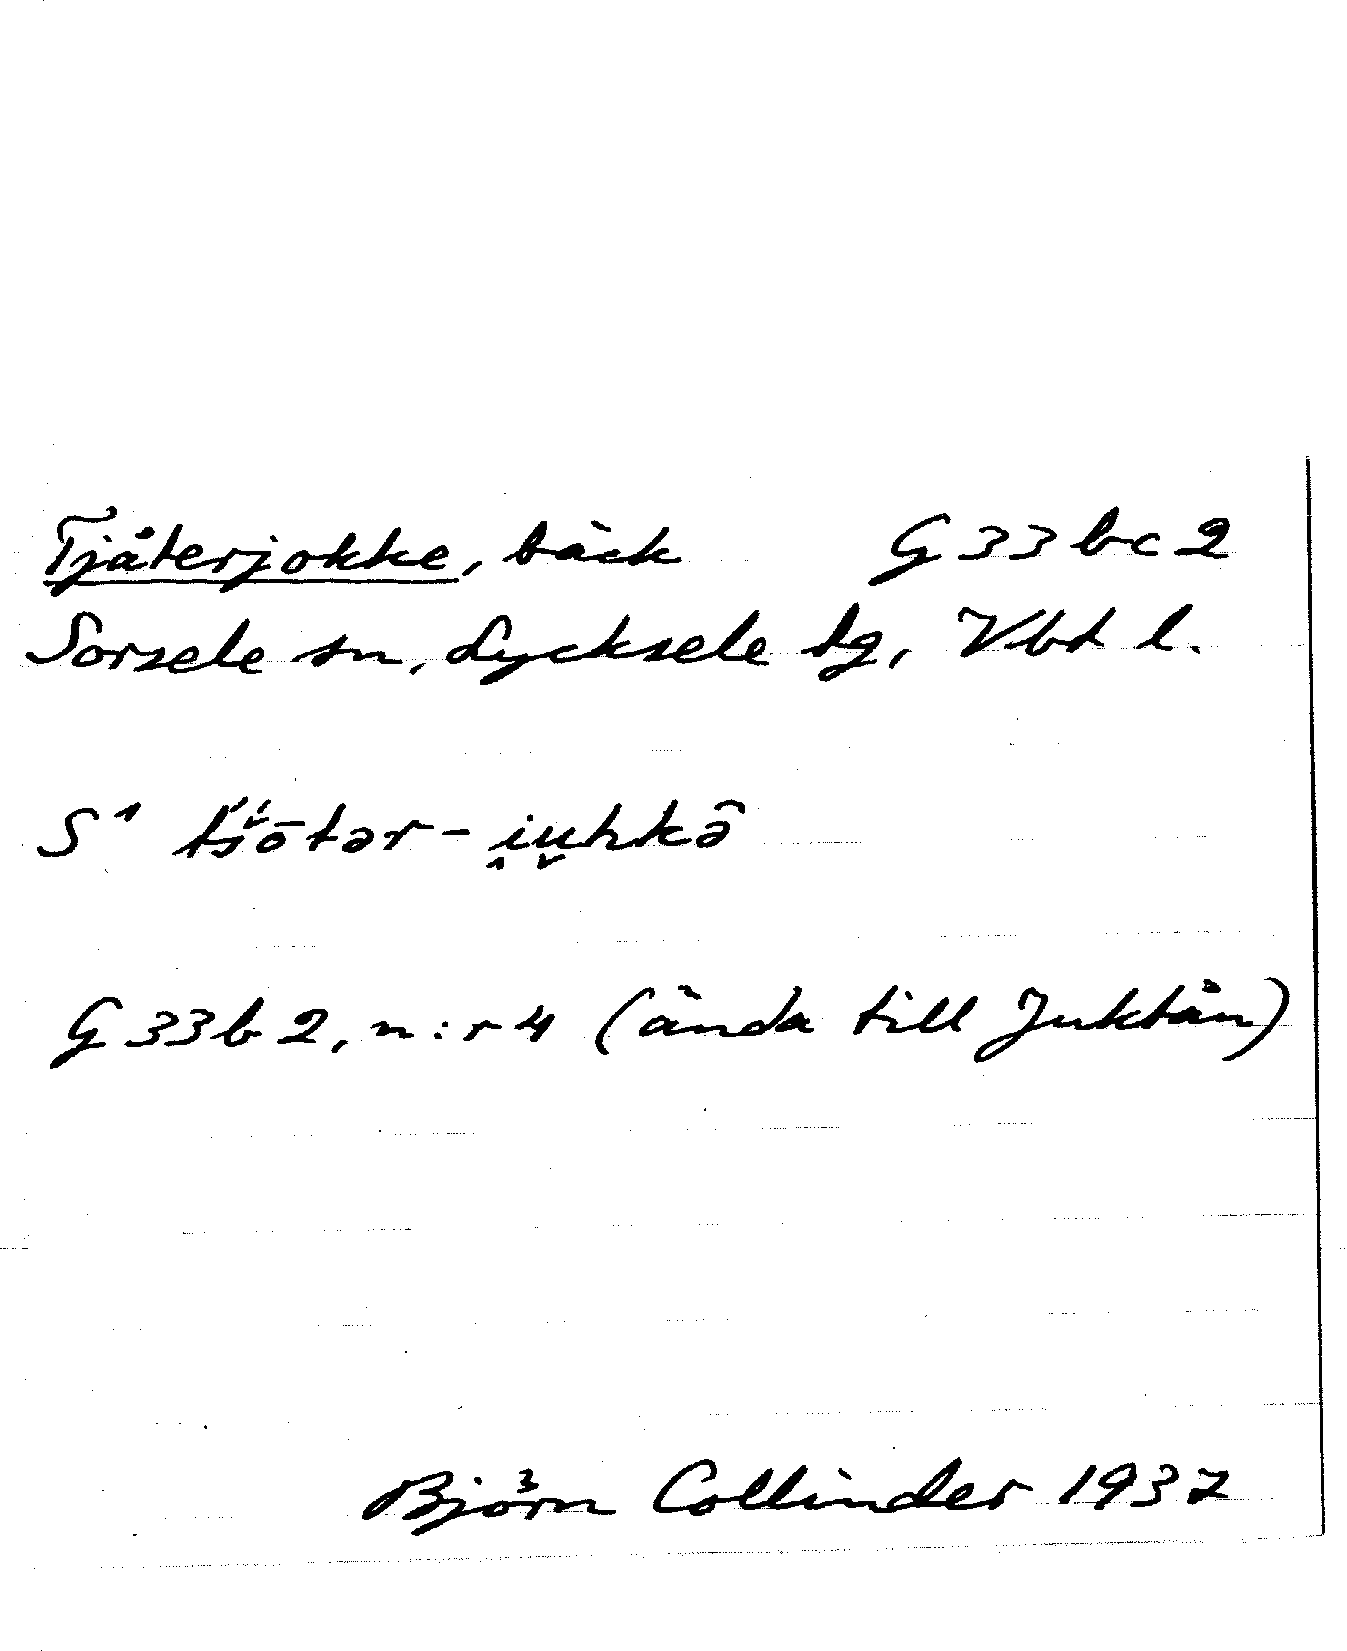 Tjåterjokke, bäck G 33 bc 2
Sorsele sn, Lycksele tg, Vbt l.
S¹ tš́ōtər-i̭u̬hkə̑
G 33 b 2, n:r 4 (ända till Juktån)
Björn Collinder 1937